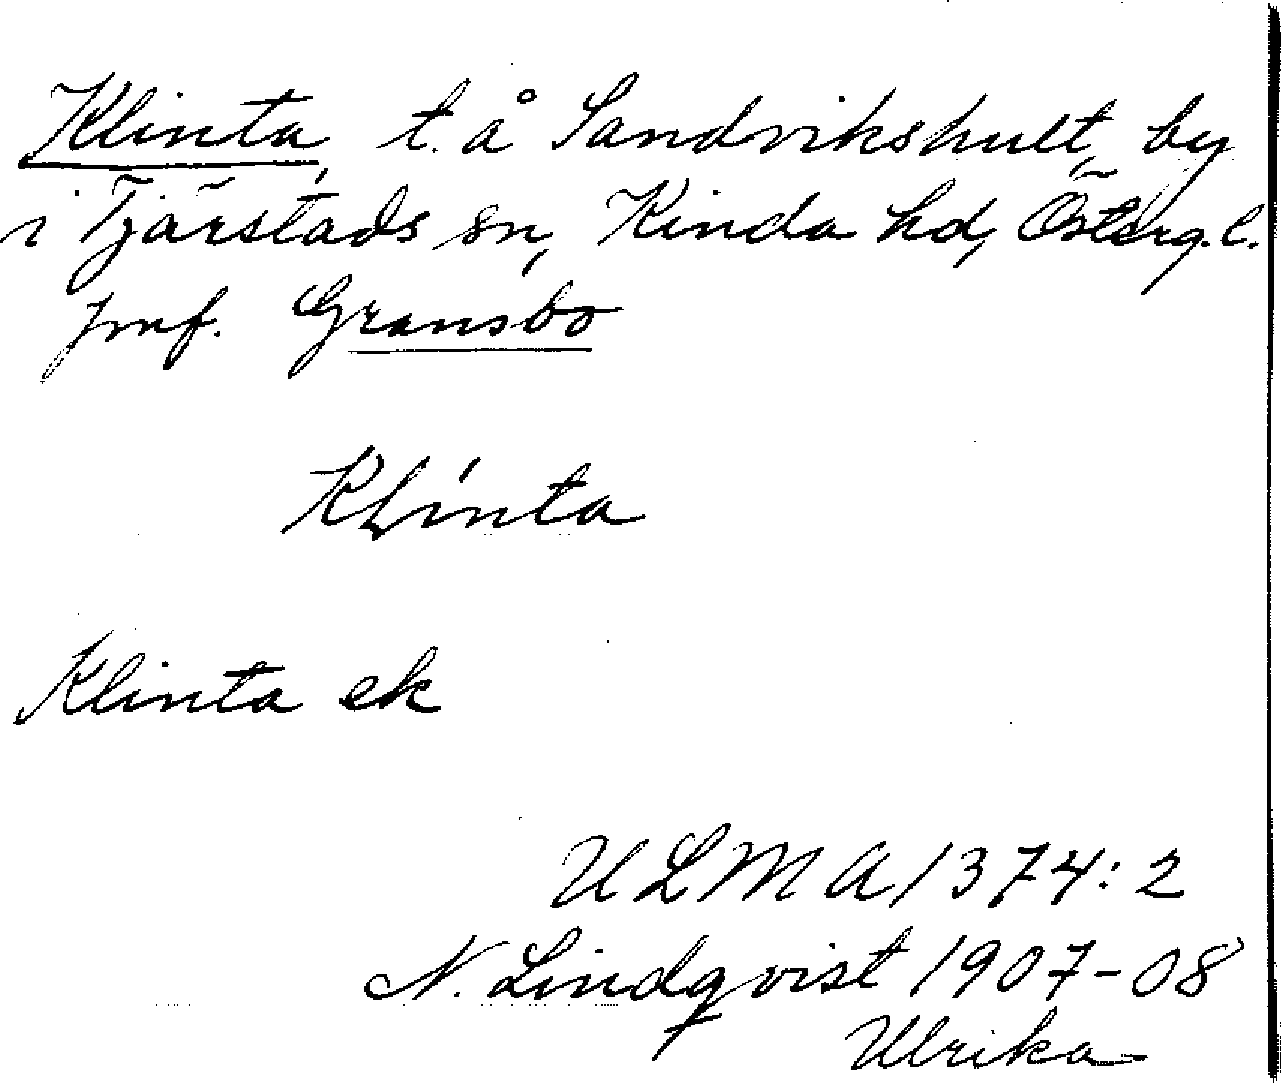 Klinta, t. å Sandvikshult, by
i Tjärstads sn, Kinda hd, Österg. l.
jmf. Gransbo
Klinta
Klinta ek
ULMA 1374:2
N. Lindqvist 1907-08
Ulrika